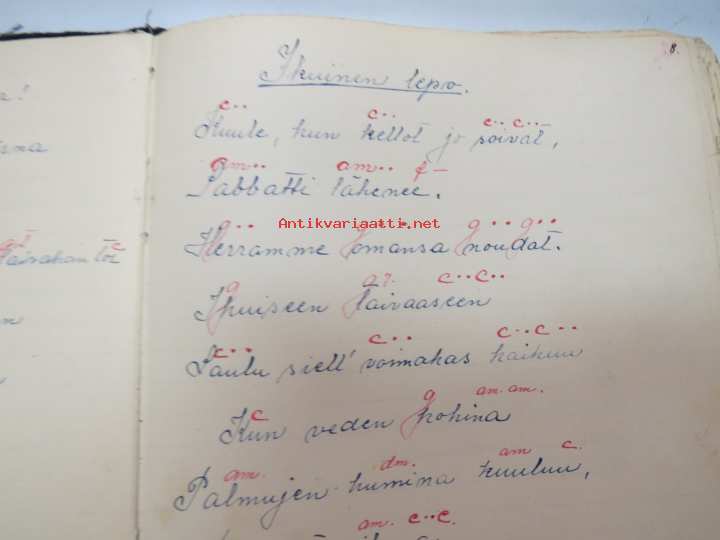 8.
Ikuinen lepo.
c·· c·· c·· c··–
Kuule, kun kellot jo soivat,
am·· am·· f–
Sabbatti lähenee.
Antikvariaatti.net
g·· g·· g··
Herramme omansa noudat.
g g7. c··c··
Ikuiseen taivaaseen
c·· c·· c··c··
Laulu siell' voimakas kaikuu
c g am. am.
Kun veden kohina
am. dm. am c.
Palmujen humina kuuluu,
am. c··c.